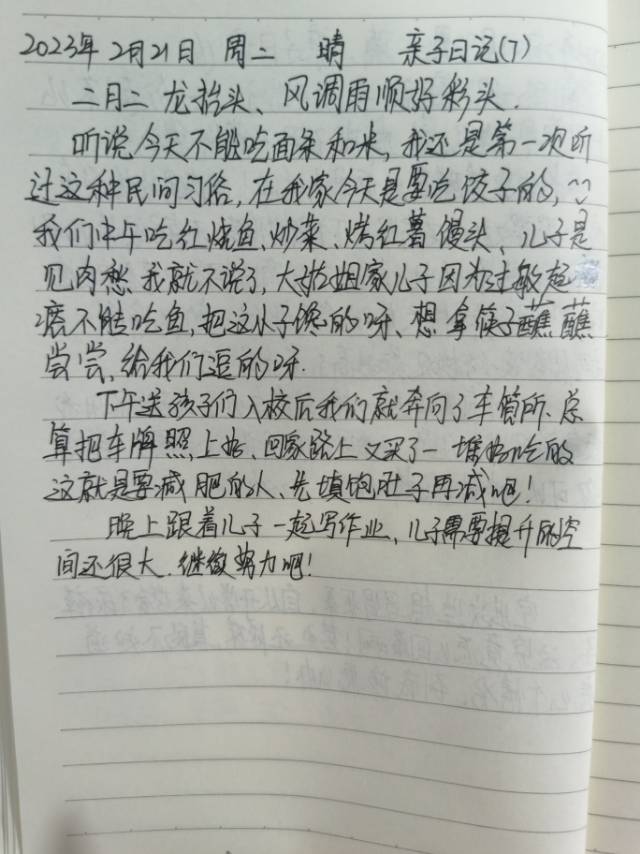 2023年2月21日 周二 晴 亲子日记(7)
二月二 龙抬头、风调雨顺好彩头.
听说今天不能吃面条和米,我还是第一次听
过这种民间习俗,在我家今天是要吃饺子的,~
我们中午吃红烧鱼、炒菜、烤红薯 馒头、儿子是
见肉愁 我就不说了,大姑姐家儿子因为过敏起
疹不能吃鱼,把这小子馋的呀、想拿筷子蘸蘸
尝尝,给我们逗的呀.
下午送孩子们入校后我们就奔向了车管所.总
算把车牌照,上好、回家路上又买了一堆好吃的
这就是要减肥的人、先填饱肚子再减吧!
晚上跟着儿子一起写作业,儿子需要提升的空
间还很大.继续努力吧!